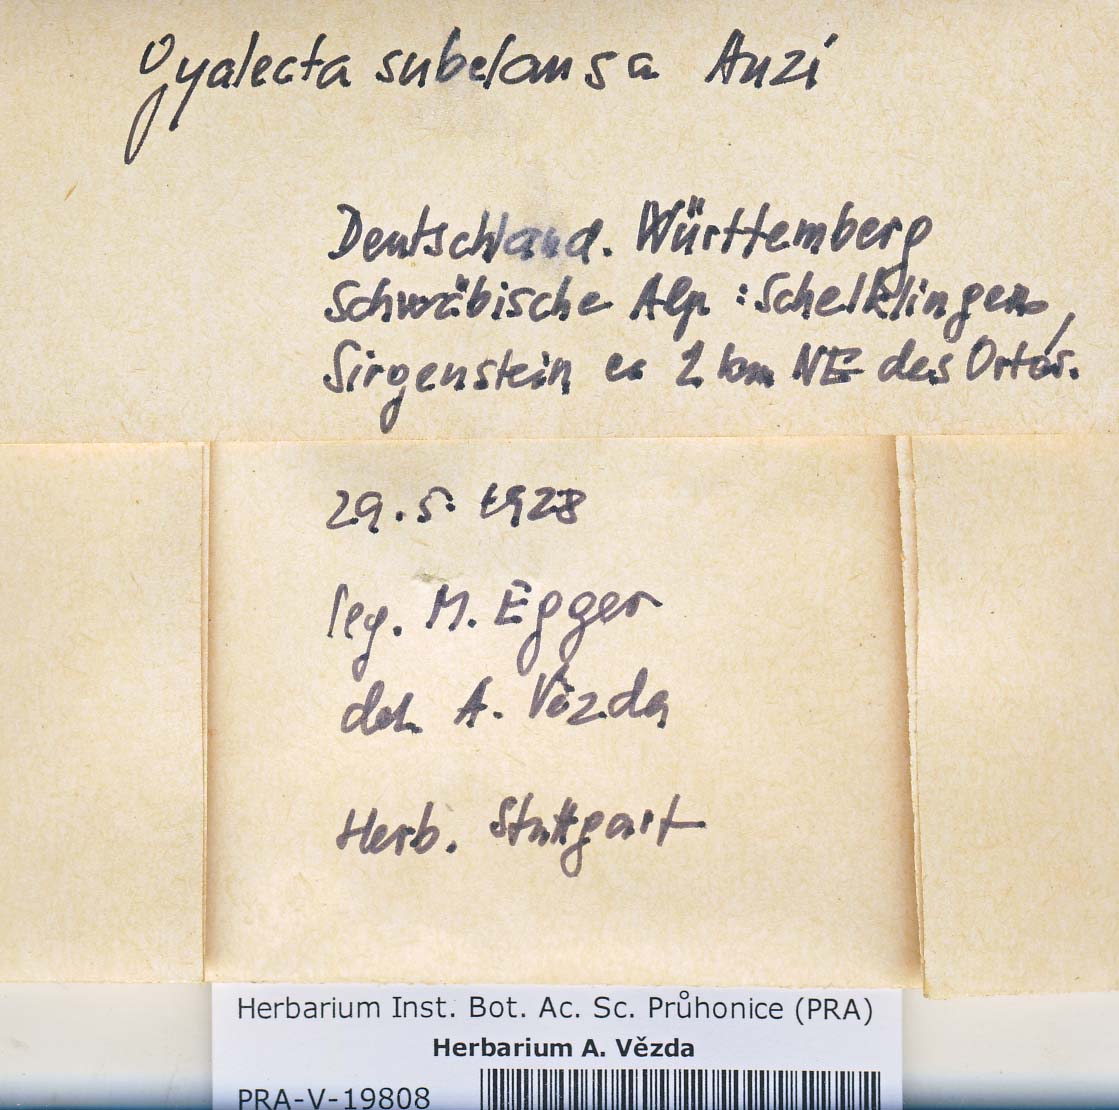 Gyalecta subclausa Anzi
Deutschland. Württemberg
Schwäbische Alp : Schelklingen,
Sirgenstein ca 2 km NE des Ortes.
29. 5. 1928
leg. M. Egger
det. A. Vězda
Herb. Stuttgart
Herbarium Inst. Bot. Ac. Sc. Průhonice (PRA)
Herbarium A. Vězda
PRA-V-19808